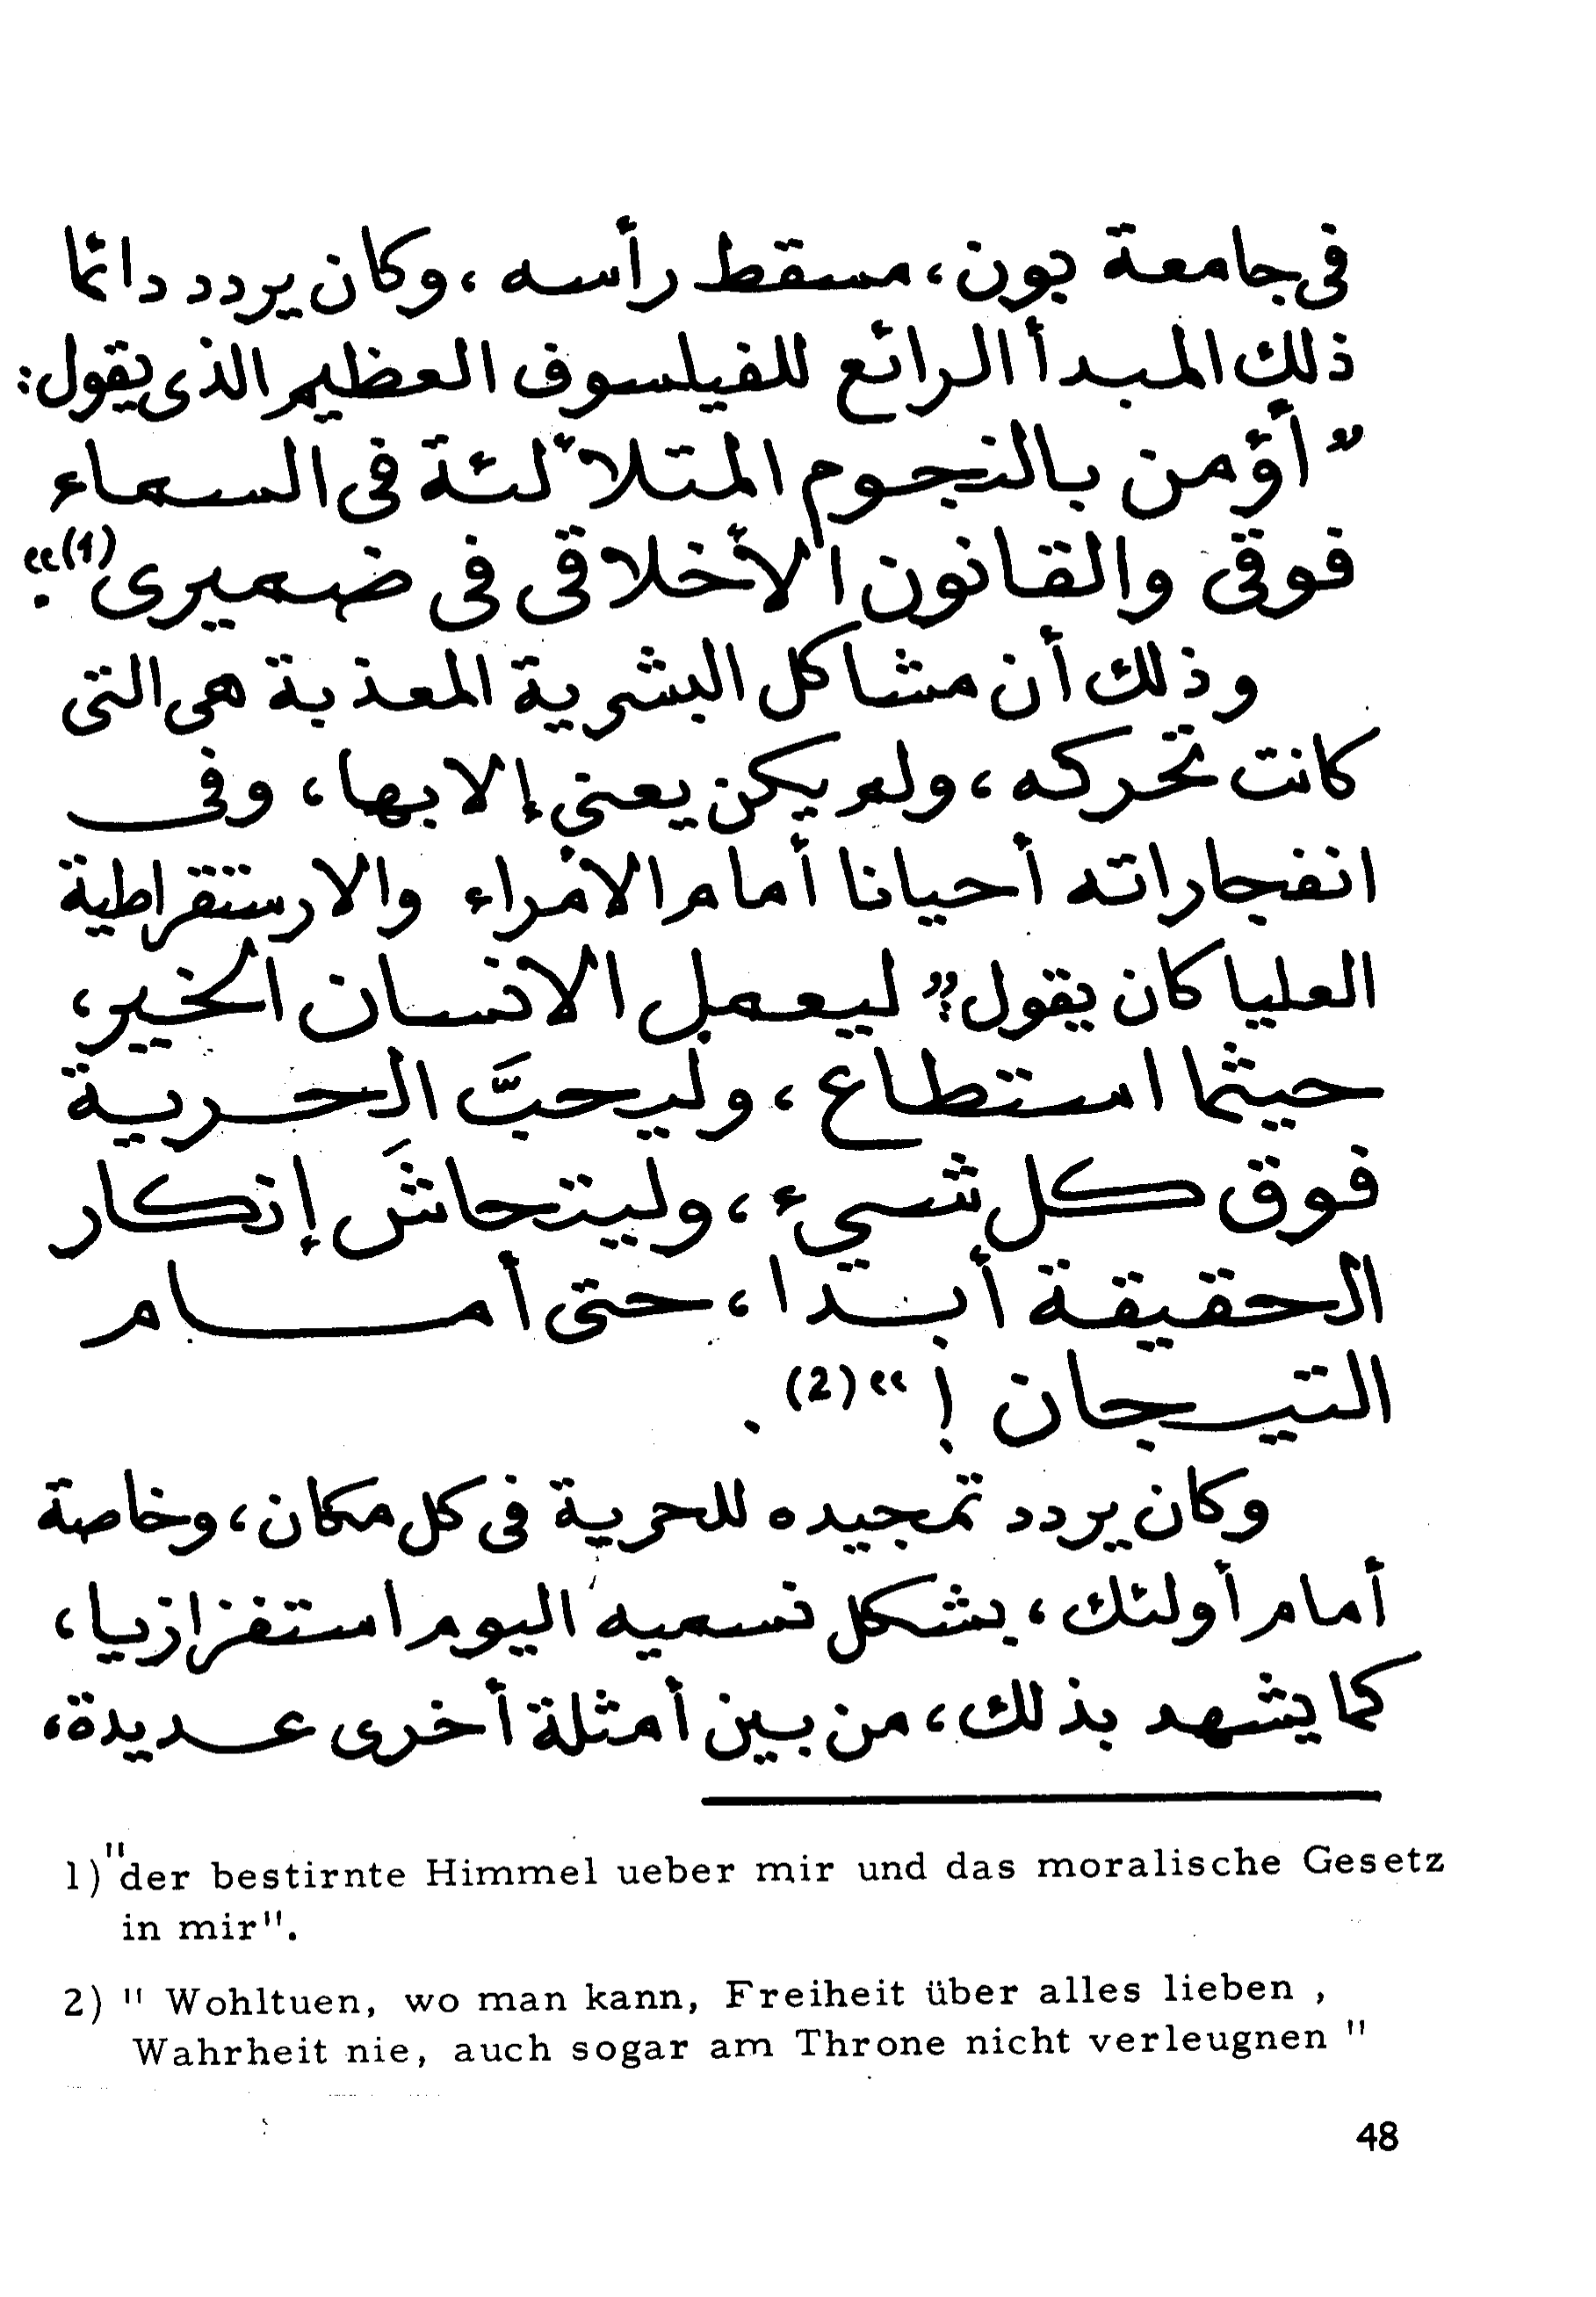 فى جامعة بون، مسقط رأسه، وكان يردد دائما
ذلك المبدأ الرائع للفيلسوف العظيم الذى يقول:
" أؤمن بالنجوم المتلألئة فى السماء
فوقى والقانون الأخلاقى فى ضميرى(1)".
وذلك أن مشاكل البشرية المعذبة هى التى
كانت تحركه، ولم يكن يعنى إلا بها، وفى
انفجاراته أحيانا أمام الأمراء والارستقراطية
العليا كان يقول: " ليعمل الانسان الخير،
حيثما استطاع، وليحبَّ الحرية
فوق كل شيء، وليتحاشَ إنكار
الحقيقة أبدا، حتى أمام
التيجان ! " (2).
وكان يردد تمجيده للحرية فى كل مكان، وخاصة
أمام أولئك، بشكل نسميه اليوم استفزازيا،
كما يشهد بذلك، من بين أمثلة أخرى عديدة،
1) "der bestirnte Himmel ueber mir und das moralische Gesetz
in mir".
2) " Wohltuen, wo man kann, Freiheit über alles lieben ,
Wahrheit nie, auch sogar am Throne nicht verleugnen "
48